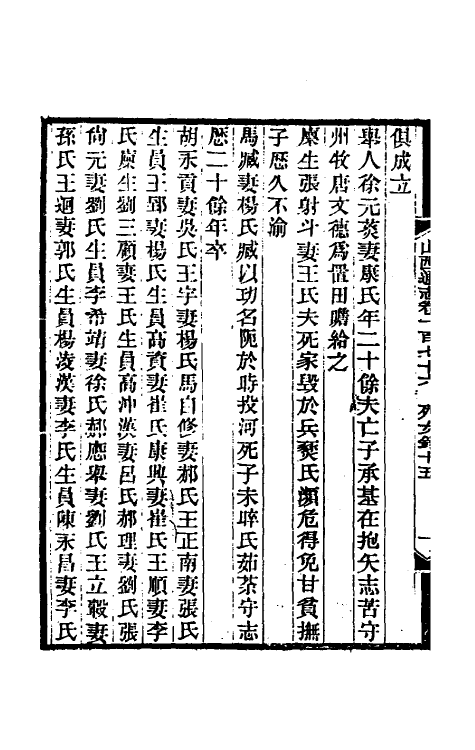 俱成立
舉人徐元葵妻康氏年二十餘夫亡子承基在抱矢志苦守
州牧唐文德爲置田贍給之
廩生張射斗妻王氏夫死家毀於兵燹氏瀕危得免甘貧撫
子歷久不渝
馬臧妻楊氏臧以功名阨於時投河死子未晬氏茹荼守志
歷二十餘年卒
胡永貢妻吳氏王宇妻楊氏馬自修妻郝氏王正南妻張氏
生員王郢妻楊氏生員高資妻崔氏康興妻崔氏王順妻李
氏廩生劉三顧妻王氏生員高沖漢妻呂氏郝理妻劉氏張
尙元妻劉氏生員李希靖妻徐氏郝應舉妻劉氏王立穀妻
孫氏王迴妻郭氏生員楊淩漢妻李氏生員陳永昌妻李氏
山西通志卷一百七十六 列女錄十五